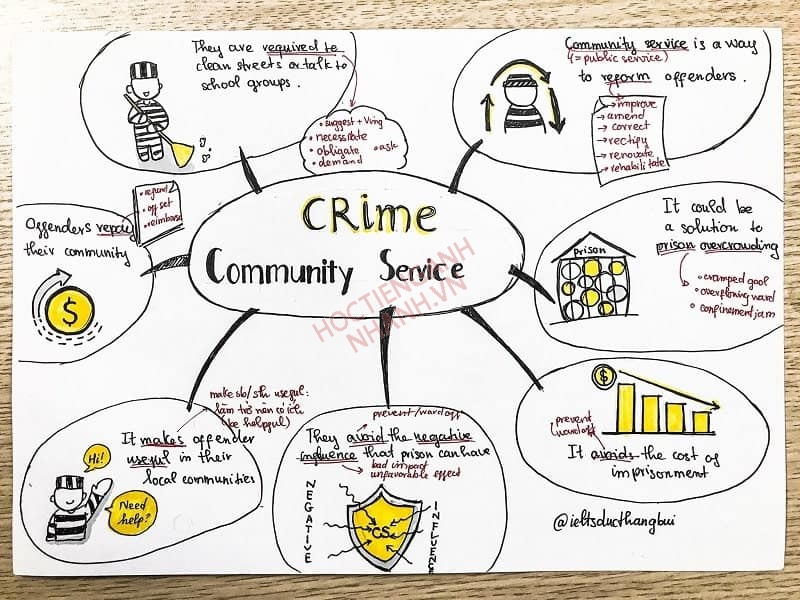 They are required to
clean streets or talk to
school groups.
• suggest + Ving
• necessitate
• obligate • ask
• demand
Community service is a way
(= public service)
to reform offenders.
→ improve
→ amend
→ correct
→ rectify
→ renovate
→ rehabilitate
• refund
• offset
• reimburse
Offenders repay
their community
$
CRime
Community Service
HOCTIENGANH
NHANH.VN
It could be
a solution to
prison overcrowding
• cramped gaol
• overflowing ward
• confinement jam
prison
make sb/sth useful:
làm trở nên có ích
(be helpful)
It makes offender
useful in their
local communities
Hi!
Need
help?
prevent/ward off
They avoid the negative
influence that prison can have
bad impact
unfavorable effect
NEGATIVE
CS
INFLUENCE
$
prevent
ward off
It avoids the cost of
imprisonment
@ieltsducthangbui